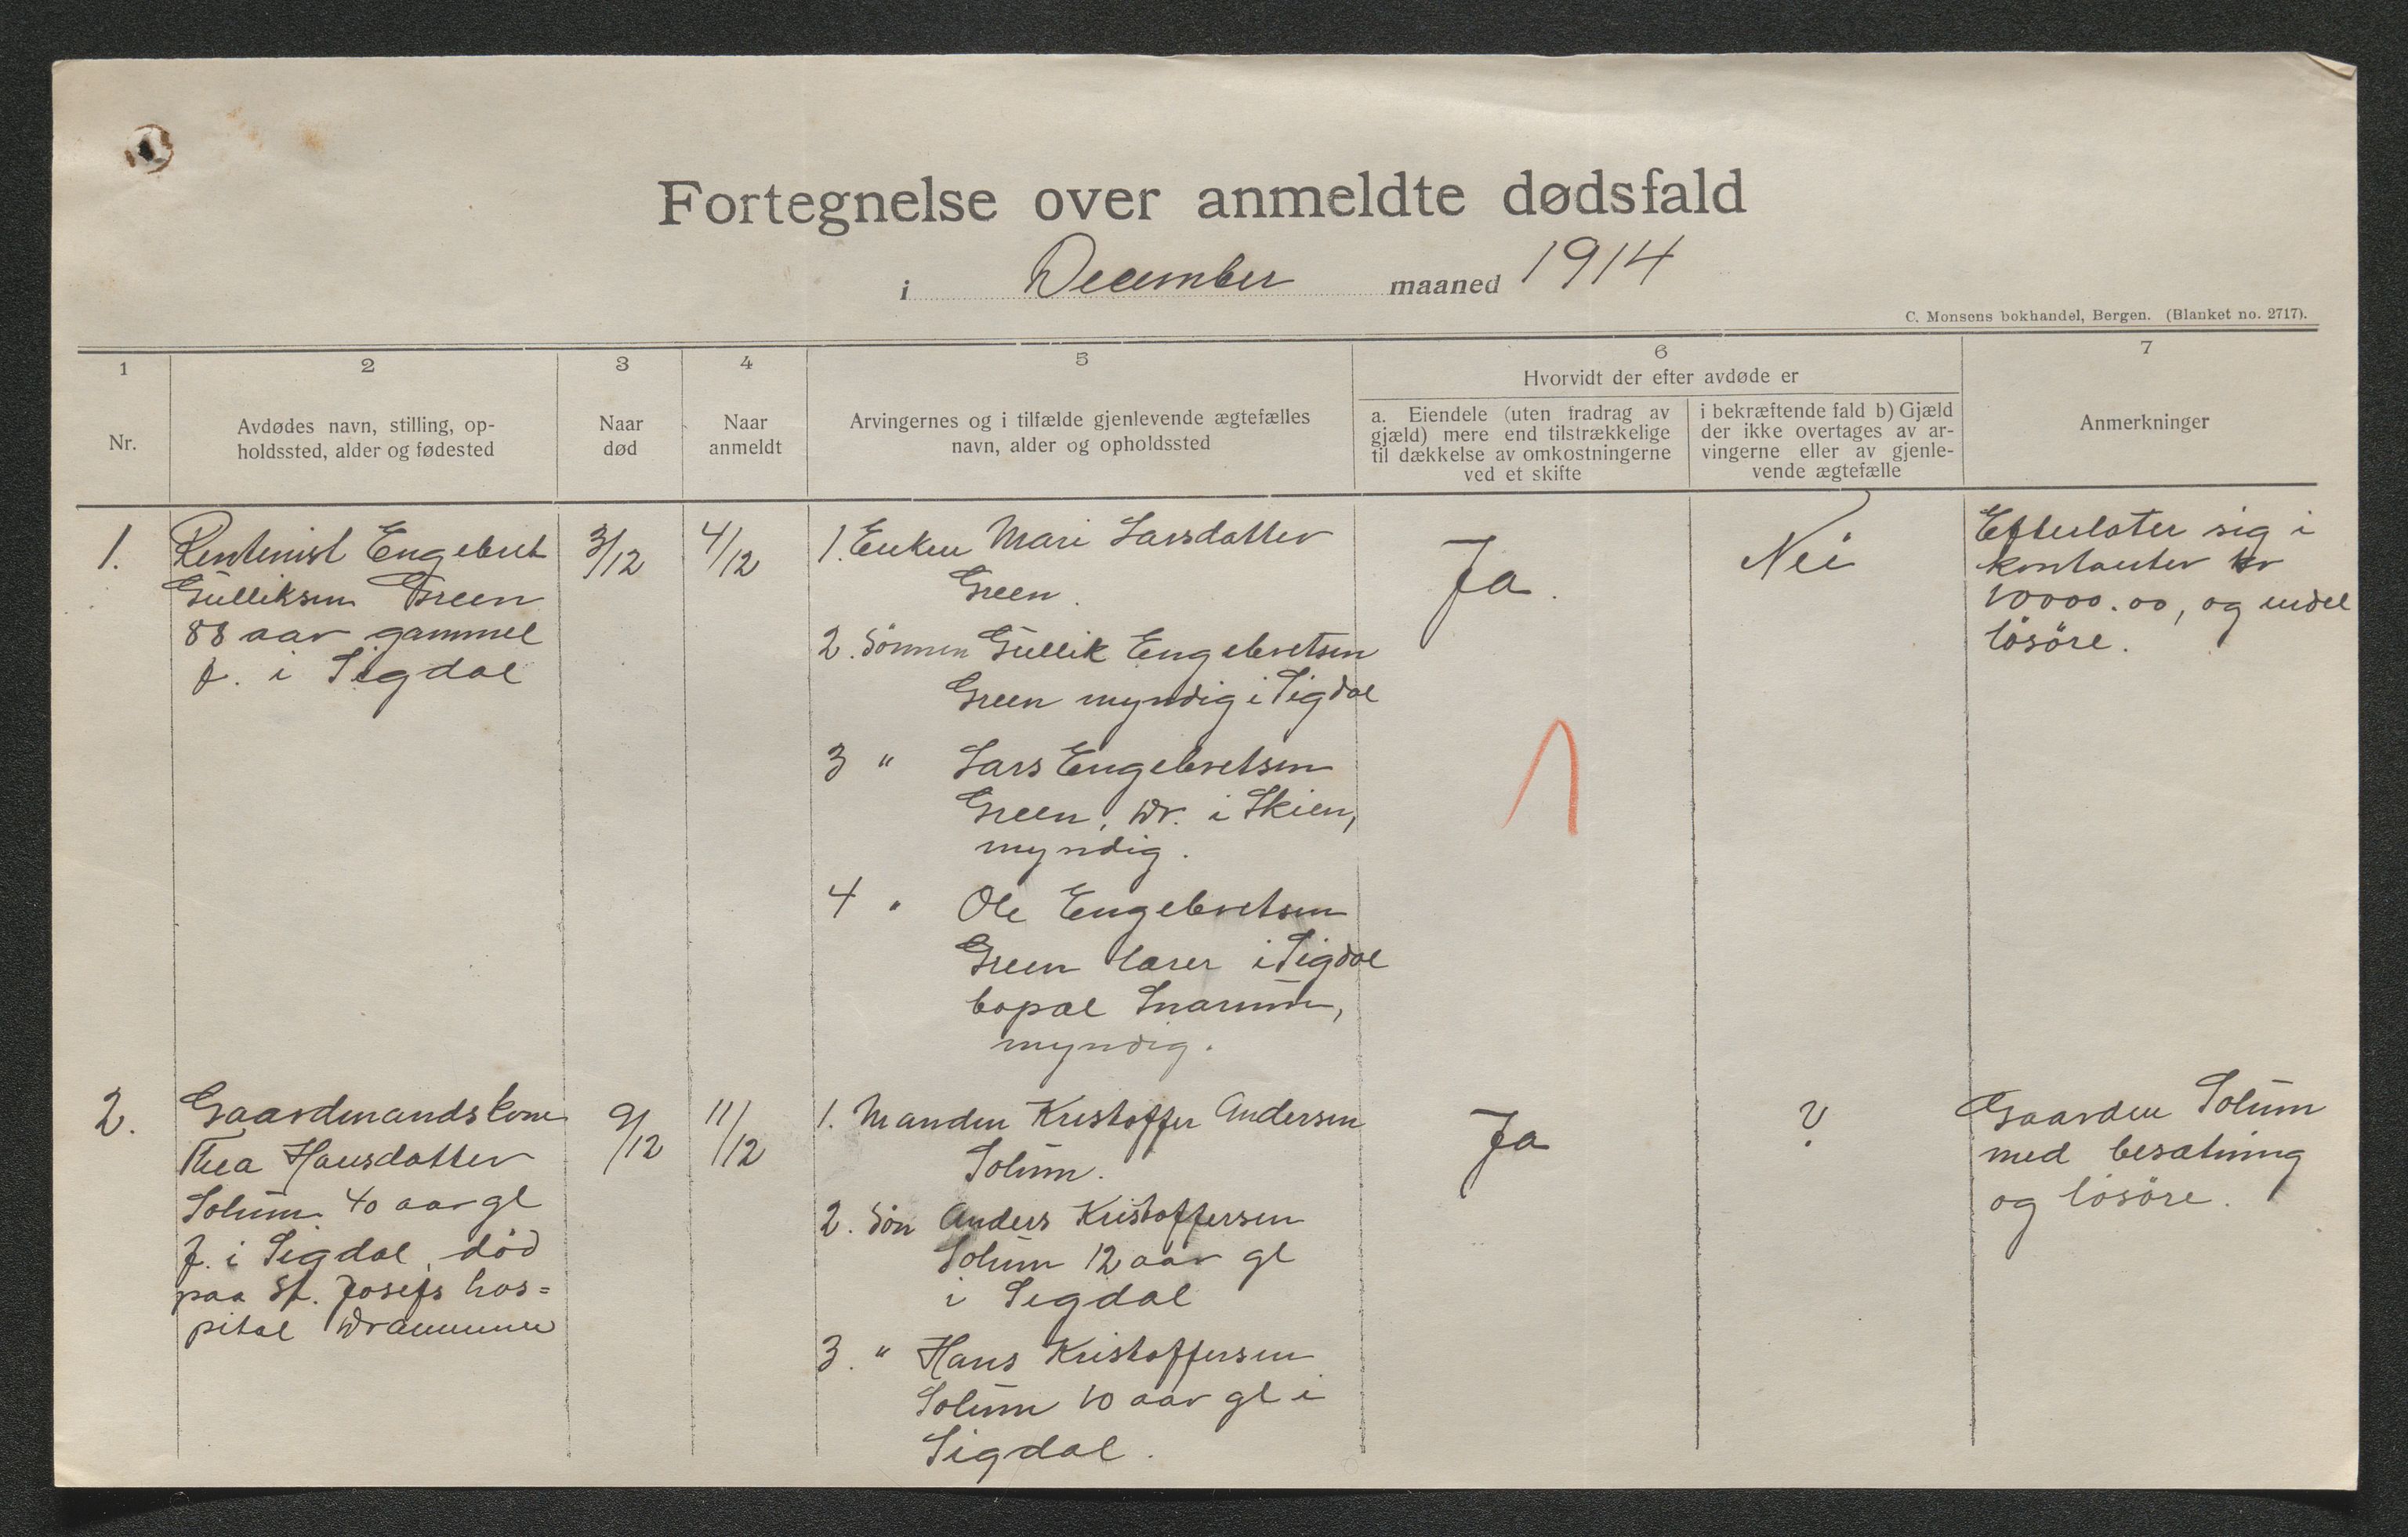 Fortegnelse over anmeldte dødsfald
i December maaned 1914
C. Monsens bokhandel, Bergen. (Blanket no. 2717).
1
Nr.
2
Avdødes navn, stilling, op-
holdssted, alder og fødested
3
Naar
død
4
Naar
anmeldt
5
Arvingernes og i tilfælde gjenlevende ægtefælles
navn, alder og opholdssted
6
Hvorvidt der efter avdøde er
a. Eiendele (uten fradrag av
gjæld) mere end tilstrækkelige
til dækkelse av omkostningerne
ved et skifte
i bekræftende fald b) Gjæld
der ikke overtages av ar-
vingerne eller av gjenle-
vende ægtefælle
7
Anmerkninger
1.
Rentenist Engebret
Gulliksen Green
88 aar gammel
f. i Sigdal
3/12
4/12
1. Enken Mari Larsdatter
Green.
2. Sönnen Gullik Engebretsen
Green myndig i Sigdal
3 " Lars Engebretsen
Green, Dr. i Skien,
myndig.
4 " Ole Engebretsen
Green lærer i Sigdal
bopæl Snarum,
myndig.
Ja.
Nei
Efterlater sig i
kontanter kr
10000.00, og endel
lösöre.
2.
Gaardmandskone
Thea Hansdatter
Solum 40 aar gl
f. i Sigdal, död
paa St. Josefs hos=
pital Drammen
9/12
11/12
1. Manden Kristoffer Andersen
Solum.
2. Sön Anders Kristoffersen
Solum 12 aar gl
i Sigdal
3. " Hans Kristoffersen
Solum 10 aar gl i
Sigdal.
Ja
?
Gaarden Solum
med besætning
og lösöre.